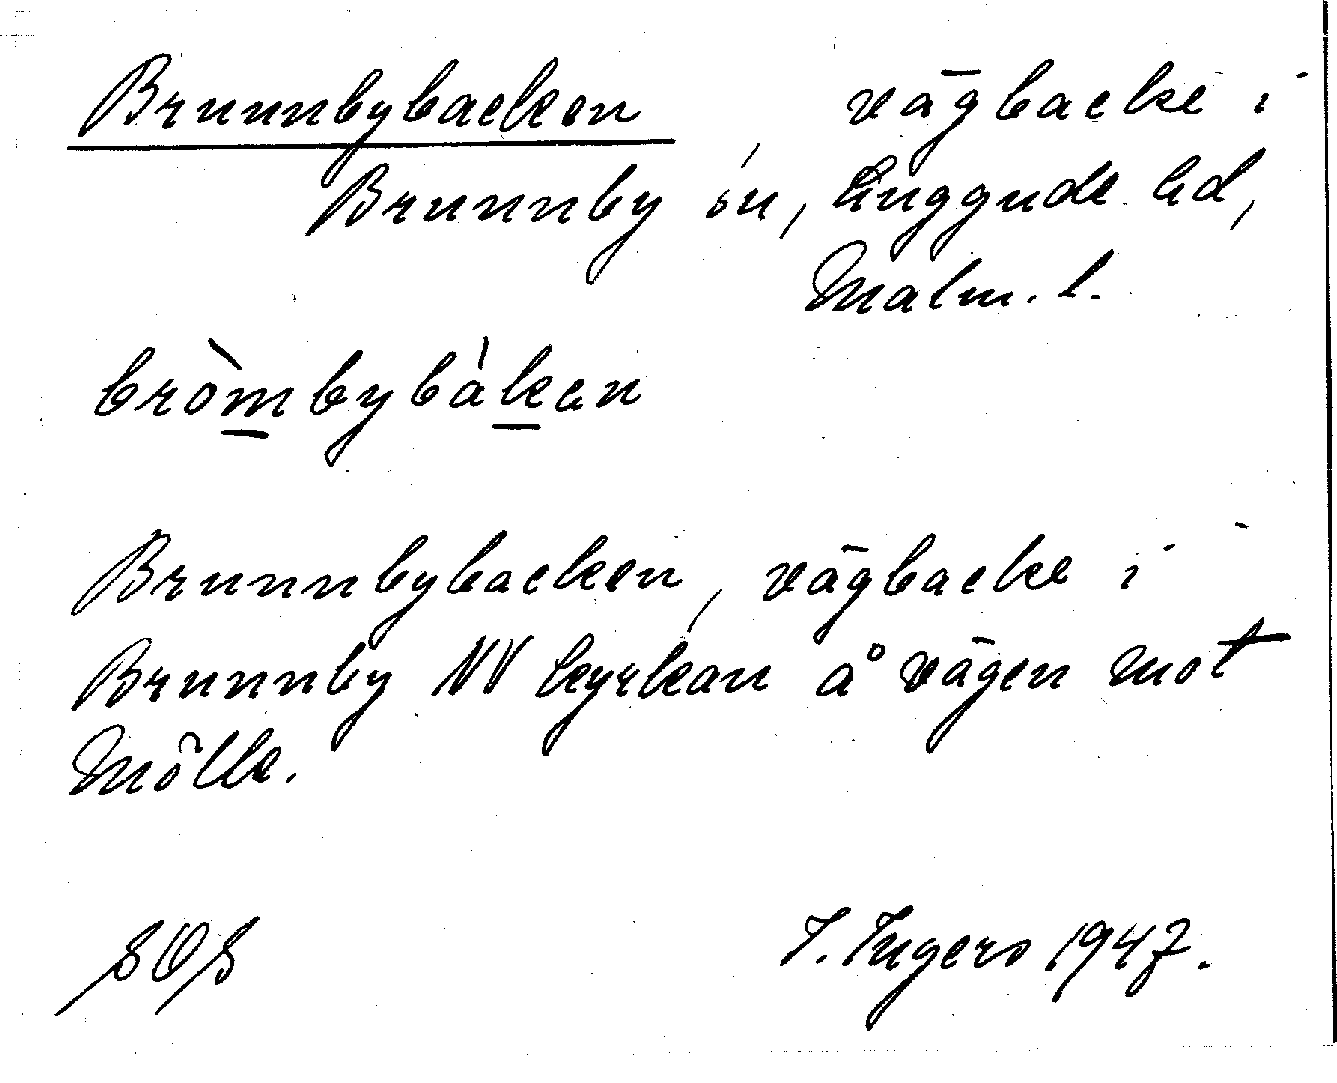 Brunnbybacken vägbacke i
Brunnby sn, Luggude hd,
Malm. l.
bròmbybáken
Brunnbybacken, vägbacke i
Brunnby NV kyrkan å vägen mot
Mölle.
SOS I. Ingers 1947.